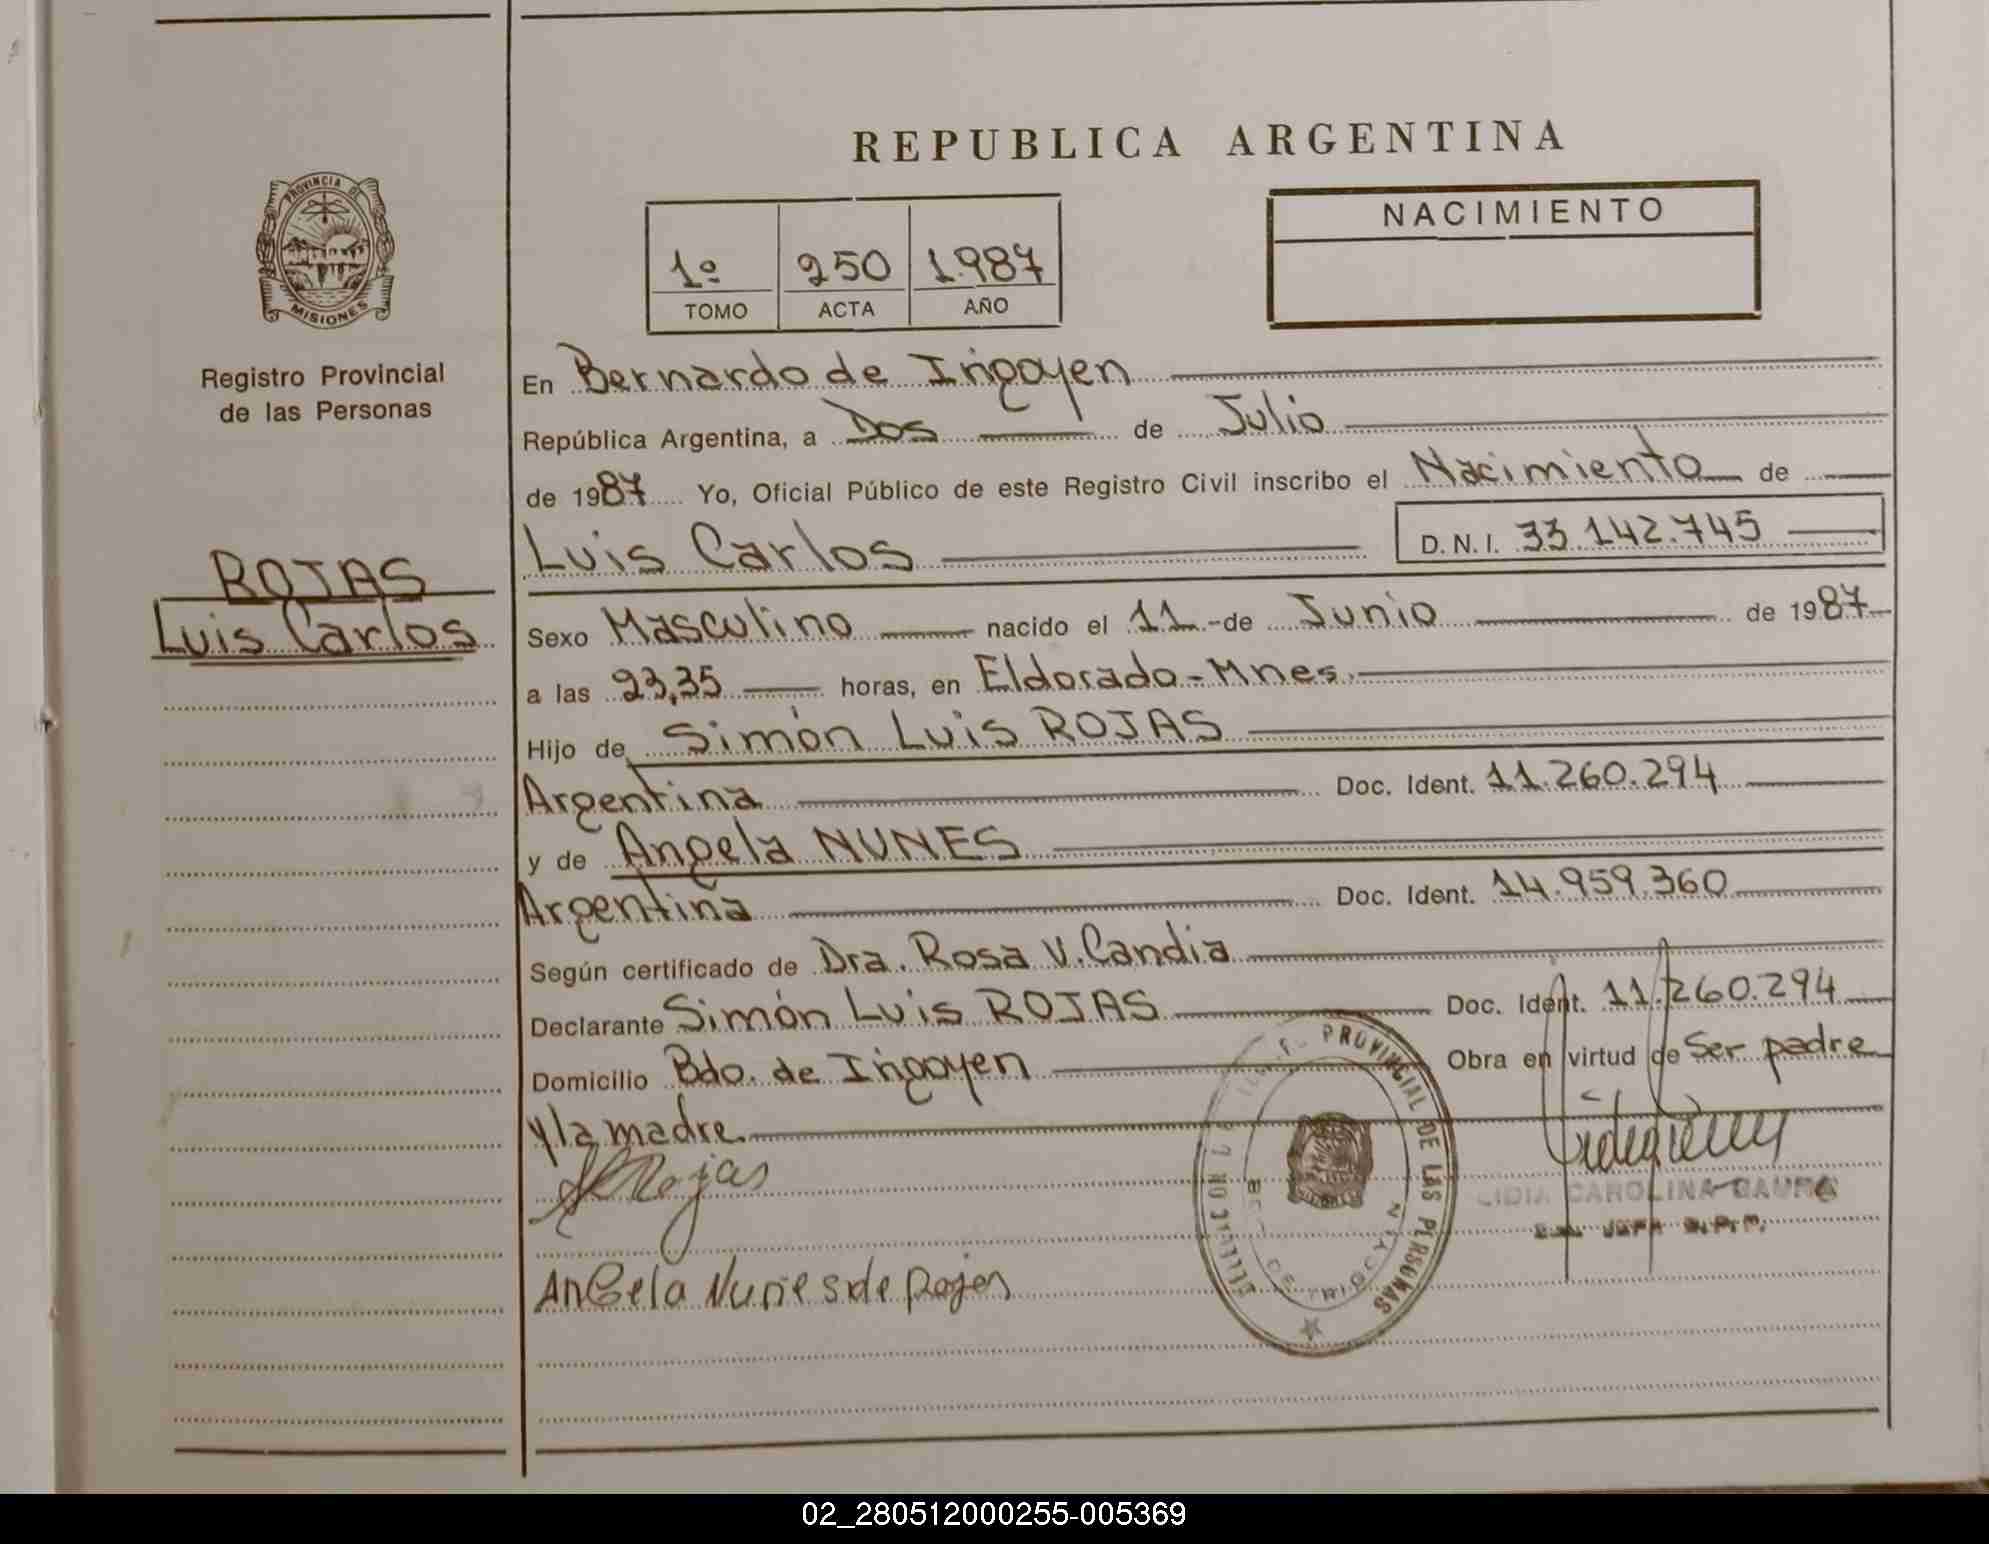 REPUBLICA ARGENTINA
PROVINCIA DE
MISIONES
Registro Provincial
de las Personas
ROJAS
Luis Carlos
1º 250 1.987
TOMO ACTA AÑO
NACIMIENTO
En Bernardo de Irigoyen
República Argentina, a Dos de Julio
de 1987 Yo, Oficial Público de este Registro Civil inscribo el Nacimiento de
Luis Carlos D.N.I. 33.142.745
Sexo Masculino nacido el 11 - de Junio de 1987
a las 23,35 horas, en Eldorado - Mnes.
Hijo de Simón Luis ROJAS
Argentina Doc. Ident. 11.260.294
y de Angela NUNES
Argentina Doc. Ident. 14.959.360
Según certificado de Dra. Rosa V. Candia
Declarante Simón Luis ROJAS Doc. Ident. 11.260.294
Domicilio Bdo. de Irigoyen Obra en virtud de Ser padre
y la madre.
Rojas
AnGela Nunes de Rojas
PROVINCIAL DE LAS PERSONAS
LIDIA CAROLINA
02_280512000255-005369